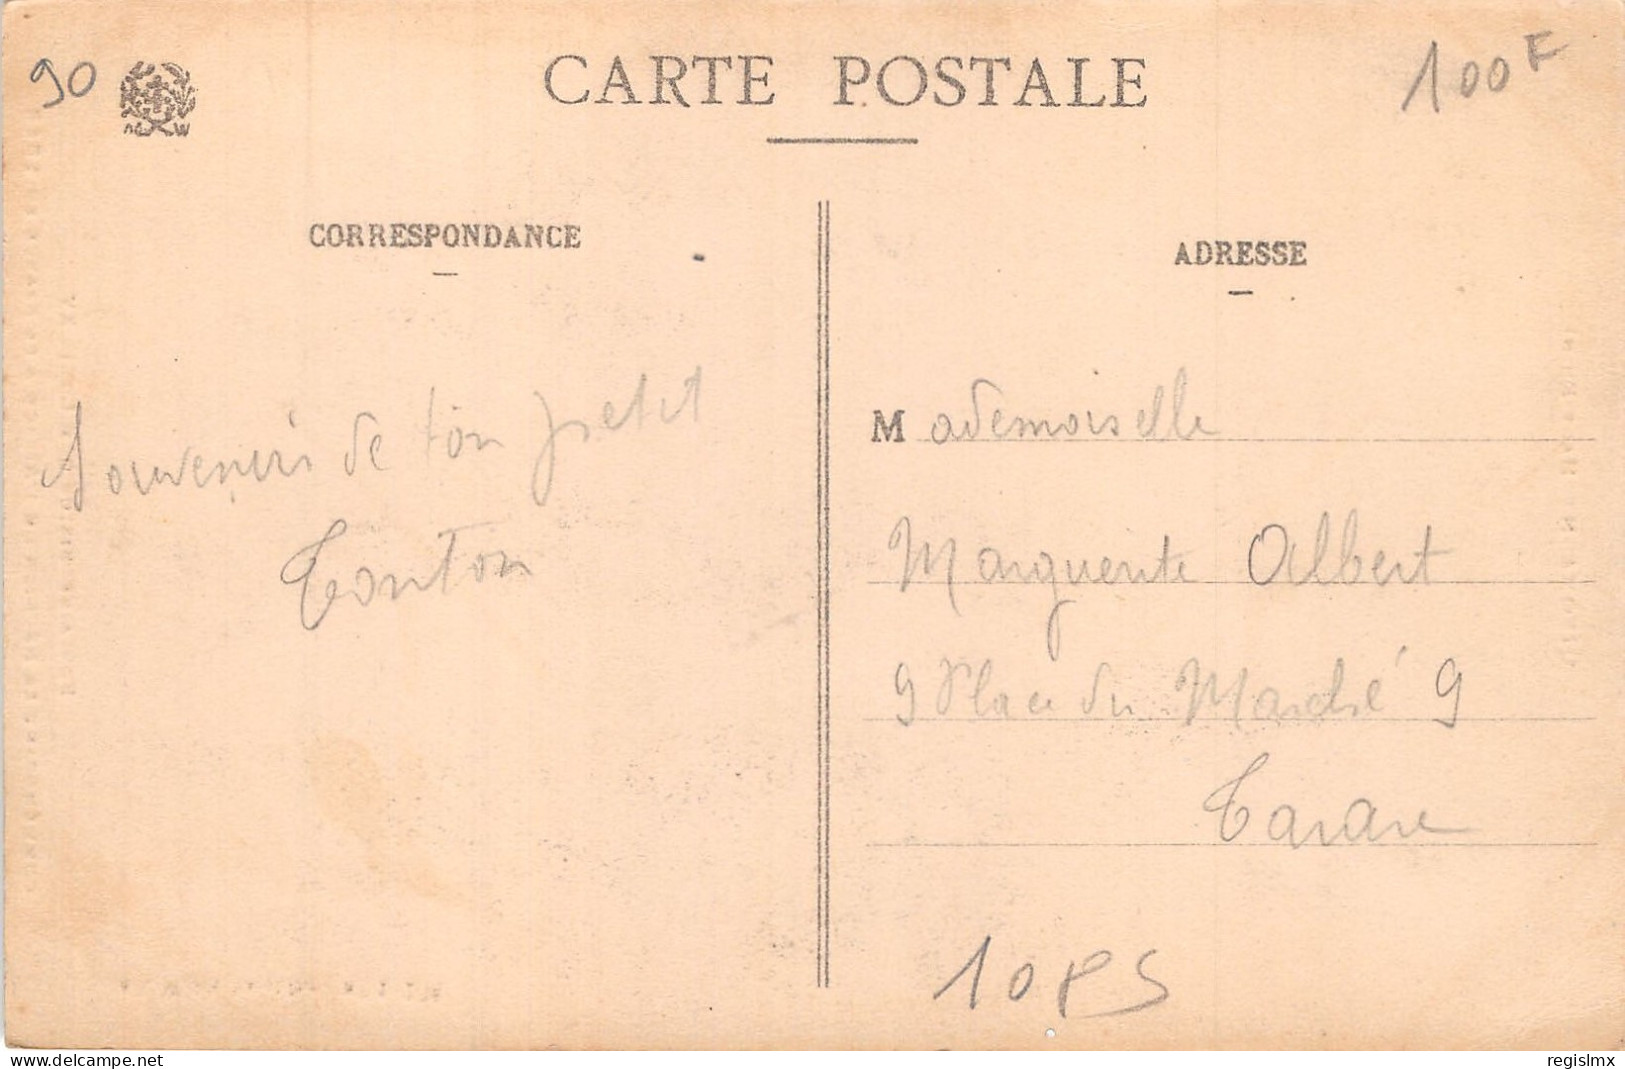 90
CARTE POSTALE
100F
CORRESPONDANCE
Souvenirs de ton petit
Tonton
ADRESSE
Mademoiselle
Marguerite Albert
9 Place du Marché 9
Tarare
10PS
delcampe.net
regislmx